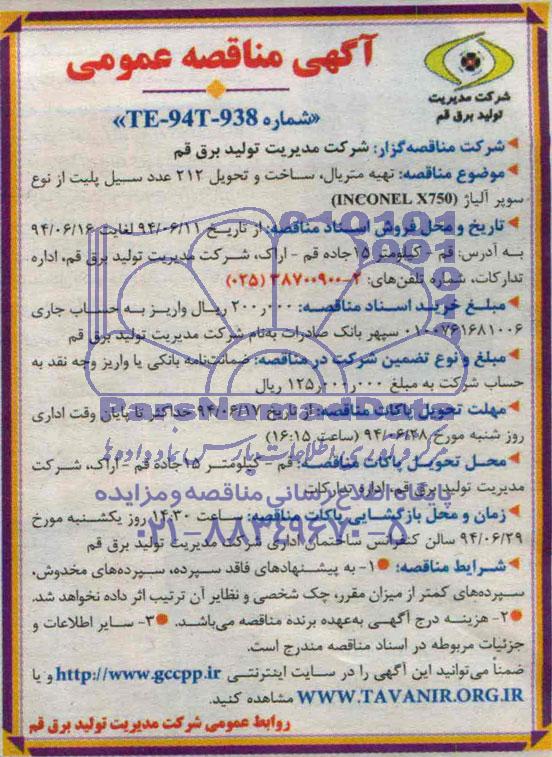 آگهی مناقصه عمومی
شرکت مدیریت
تولید برق قم
«شماره TE-94T-938»
شرکت مناقصه‌گزار: شرکت مدیریت تولید برق قم
موضوع مناقصه: تهیه متریال، ساخت و تحویل ۲۱۲ عدد سیل پلیت از نوع
سوپر آلیاژ (INCONEL X750)
تاریخ و محل فروش اسناد مناقصه: از تاریخ ۹۴/۰۶/۱۱ لغایت ۹۴/۰۶/۱۶
به آدرس: قم - کیلومتر ۱۵ جاده قم - اراک، شرکت مدیریت تولید برق قم، اداره
تدارکات، شماره تلفن‌های: ۲-۳۸۷۰۰۹۰۰ (۰۲۵)
مبلغ خرید اسناد مناقصه: ۲۰۰٫۰۰۰ ریال واریز به حساب جاری
۰۱۰۰۷۶۱۶۸۱۰۰۶ سپهر بانک صادرات به‌نام شرکت مدیریت تولید برق قم
مبلغ و نوع تضمین شرکت در مناقصه: ضمانت‌نامه بانکی یا واریز وجه نقد به
حساب شرکت به مبلغ ۱۲۵٫۲۰۰٫۰۰۰ ریال
ParsNamadData
مهلت تحویل پاکات مناقصه: از تاریخ ۹۴/۰۶/۱۷ حداکثر تا پایان وقت اداری
روز شنبه مورخ ۹۴/۰۶/۲۸ (ساعت ۱۶:۱۵)
محل تحویل پاکات مناقصه: قم - کیلومتر ۱۵ جاده قم - اراک، شرکت
مدیریت تولید برق قم، اداره تدارکات
پایگاه اطلاع رسانی مناقصه و مزایده
زمان و محل بازگشایی پاکات مناقصه: ساعت ۱۴:۳۰ روز یکشنبه مورخ
۰۲۱-۸۸۳۴۹۶۷۰-۵
۹۴/۰۶/۲۹ سالن کنفرانس ساختمان اداری شرکت مدیریت تولید برق قم
شرایط مناقصه: ۱- به پیشنهادهای فاقد سپرده، سپرده‌های مخدوش،
سپرده‌های کمتر از میزان مقرر، چک شخصی و نظایر آن ترتیب اثر داده نخواهد شد.
۲- هزینه درج آگهی به‌عهده برنده مناقصه می‌باشد. ۳- سایر اطلاعات و
جزئیات مربوطه در اسناد مناقصه مندرج است.
ضمناً می‌توانید این آگهی را در سایت اینترنتی http://www.gccpp.ir و یا
WWW.TAVANIR.ORG.IR مشاهده کنید.
روابط عمومی شرکت مدیریت تولید برق قم